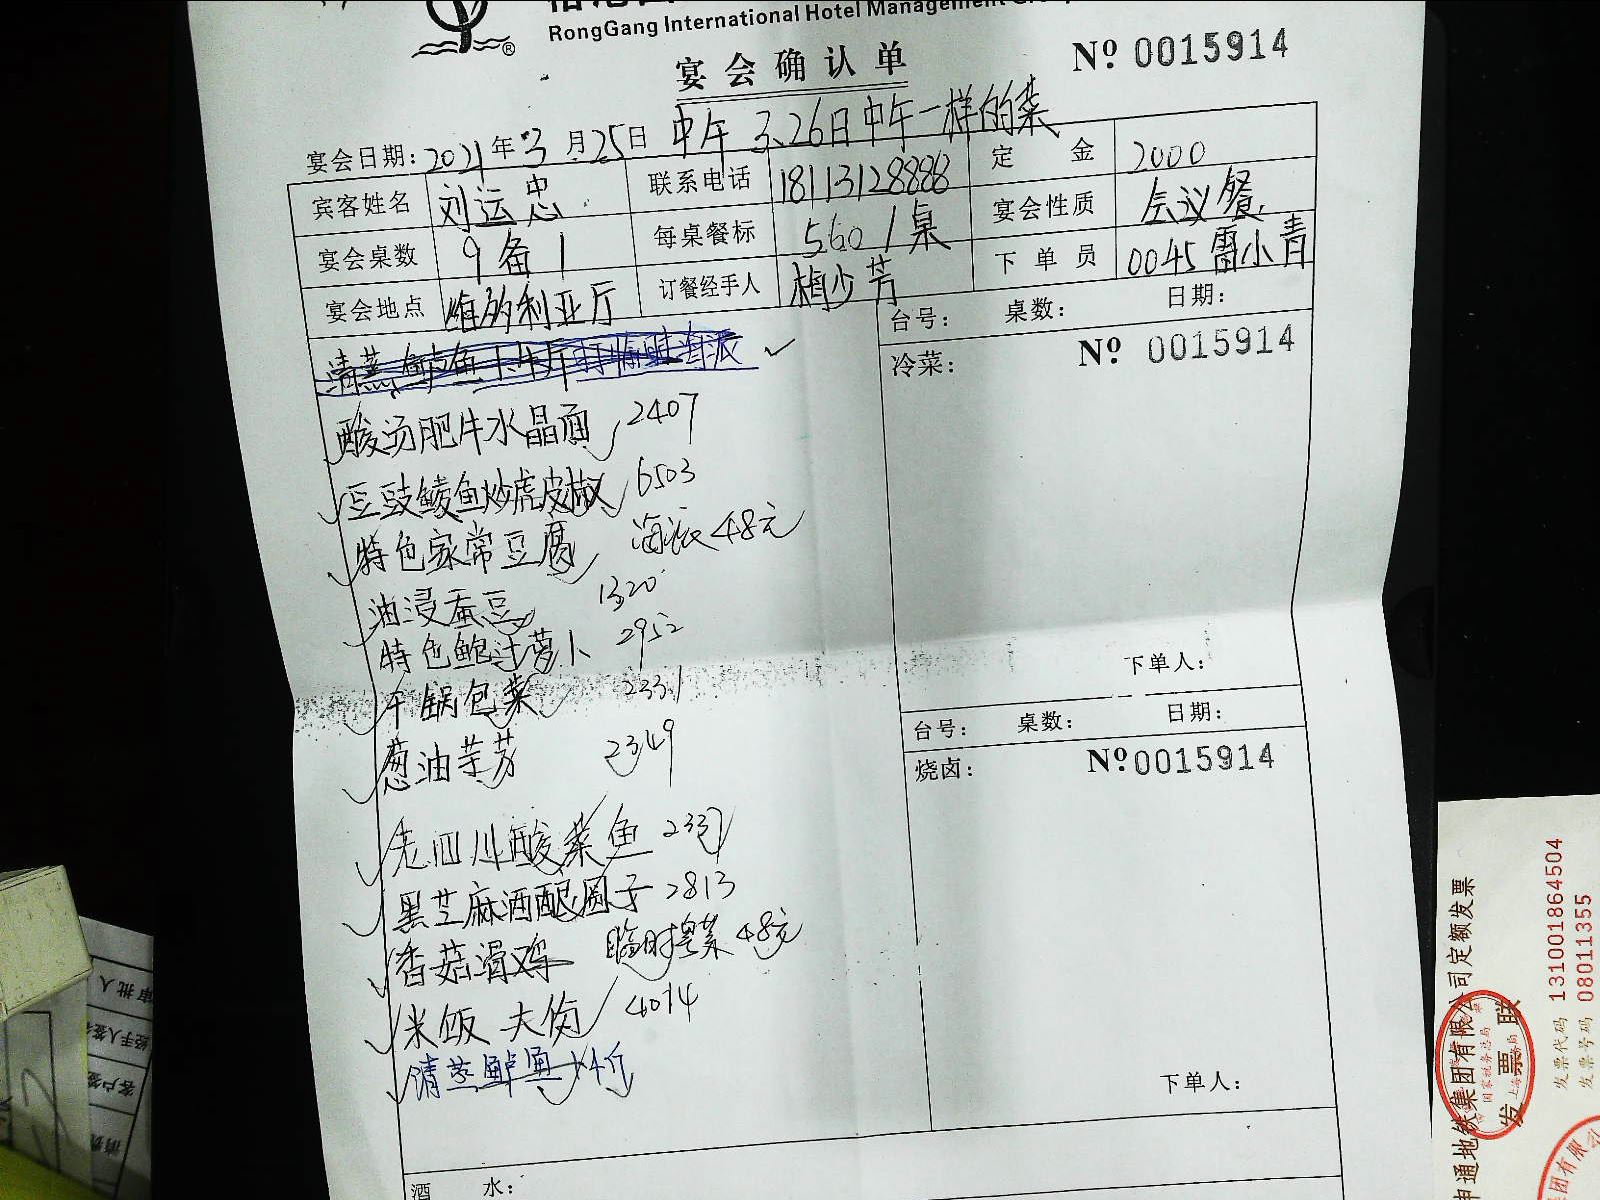 RongGang International Hotel Management Group
宴会确认单
Nº 0015914
宴会日期: 2021年3月25日 中午 3.26日中午一样的菜
宾客姓名 刘运忠 联系电话 18113128888 定金 2000
宴会桌数 9备1 每桌餐标 560/桌 宴会性质 会议餐
宴会地点 维多利亚厅 订餐经手人 梅少芳 下单员 0045 雷小青
台号: 桌数: 日期:
冷菜: Nº 0015914
酸汤肥牛水晶面 2407
豆豉鲮鱼炒虎皮椒 6503
特色家常豆腐 海派48元
油浸蚕豆 1320
特色鲍汁萝卜 2952
干锅包菜 2331
葱油芋艿 2349
老四川酸菜鱼 2337
黑芝麻酒酿圆子 2813
香菇滑鸡 临时粤菜 48元
米饭 4014
清蒸鲈鱼
下单人:
台号: 桌数: 日期:
烧卤: Nº 0015914
下单人:
酒水:
审批人
经手人签
客户签
申通地铁集团有限公司定额发票
发票联
发票代码 131001864504
发票号码 08011355